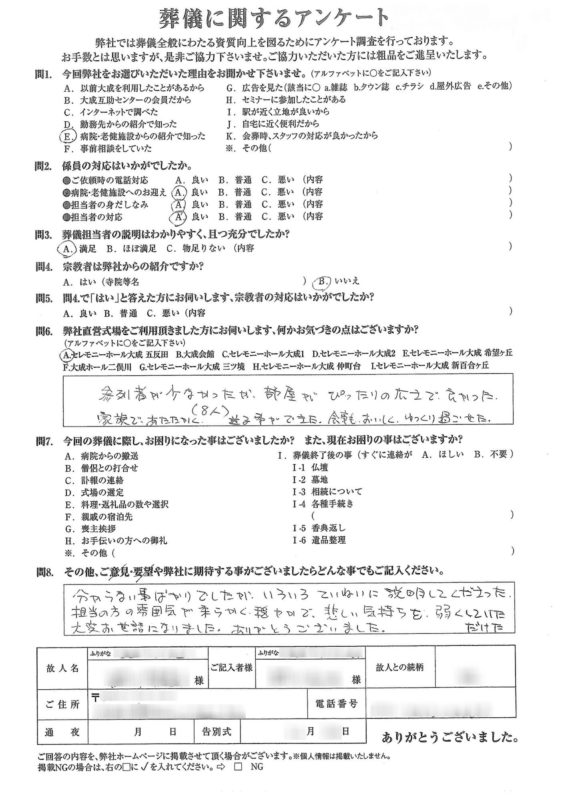 葬儀に関するアンケート
弊社では葬儀全般にわたる資質向上を図るためにアンケート調査を行っております。
お手数とは思いますが、是非ご協力下さいませ。ご協力いただいた方には粗品をご進呈いたします。
問1. 今回弊社をお選びいただいた理由をお聞かせ下さいませ。(アルファベットに○をご記入下さい)
A. 以前大成を利用したことがあるから G. 広告を見た(該当に○ a.雑誌 b.タウン誌 c.チラシ d.屋外広告 e.その他)
B. 大成互助センターの会員だから H. セミナーに参加したことがある
C. インターネットで調べた I. 駅が近く立地が良いから
D. 勤務先からの紹介で知った J. 自宅に近く便利だから
E. 病院・老健施設からの紹介で知った K. 会葬時、スタッフの対応が良かったから
F. 事前相談をしていた ※. その他( )
問2. 係員の対応はいかがでしたか。
●ご依頼時の電話対応 A. 良い B. 普通 C. 悪い (内容 )
●病院・老健施設へのお迎え A. 良い B. 普通 C. 悪い (内容 )
●担当者の身だしなみ A. 良い B. 普通 C. 悪い (内容 )
●担当者の対応 A. 良い B. 普通 C. 悪い (内容 )
問3. 葬儀担当者の説明はわかりやすく、且つ充分でしたか?
A. 満足 B. ほぼ満足 C. 物足りない (内容 )
問4. 宗教者は弊社からの紹介ですか?
A. はい (寺院等名 ) B. いいえ
問5. 問4.で「はい」と答えた方にお伺いします、宗教者の対応はいかがでしたか?
A. 良い B. 普通 C. 悪い (内容 )
問6. 弊社直営式場をご利用頂きました方にお伺いします、何かお気づきの点はございますか?
(アルファベットに○をご記入下さい)
A.セレモニーホール大成 五反田 B.大成会館 C.セレモニーホール大成1 D.セレモニーホール大成2 E.セレモニーホール大成 希望ヶ丘
F.大成ホール二俣川 G.セレモニーホール大成 三ツ境 H.セレモニーホール大成 仲町台 I.セレモニーホール大成 新百合ヶ丘
参列者が少なかったが、部屋が ぴったりの広さで良かった。
(8人)
家族で、あたたかく、 ができた。食事もおいしく、ゆっくり過ごせた。
問7. 今回の葬儀に際し、お困りになった事はございましたか? また、現在お困りの事はございますか?
A. 病院からの搬送 I. 葬儀終了後の事 (すぐに連絡が A. ほしい B. 不要)
B. 僧侶との打合せ I-1 仏壇
C. 訃報の連絡 I-2 墓地
D. 式場の選定 I-3 相続について
E. 料理・返礼品の数や選択 I-4 各種手続き
F. 親戚の宿泊先 ( )
G. 喪主挨拶 I-5 香典返し
H. お手伝いの方への御礼 I-6 遺品整理
※. その他( )
問8. その他、ご意見・要望や弊社に期待する事がございましたらどんな事でもご記入ください。
分からない事ばかりでしたが、いろいろ ていねいに 説明してくださった。
担当の方の雰囲気が 柔らかく、穏やかで、悲しい気持ちを 弱くしていた
だけた
大変お世話になりました。ありがとうございました。
ふりがな ふりがな
故人名 様 ご記入者様 様 故人との続柄
ご住所 〒 電話番号
通夜 月 日 告別式 月 日
ありがとうございました。
ご回答の内容を、弊社ホームページに掲載させて頂く場合がございます。※個人情報は掲載いたしません。
掲載NGの場合は、右の□に✓を入れてください。⇨ □ NG